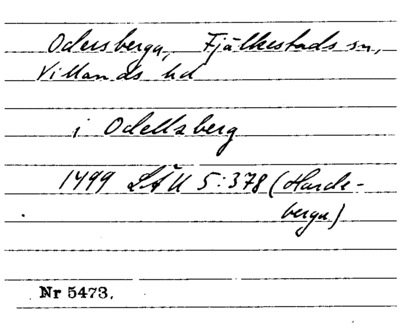 Odersberga, Fjälkestads sn,
Villands hd
i Odellsberg
1499 LÄU 5:378 (Harde-
berga)
Nr 5473.